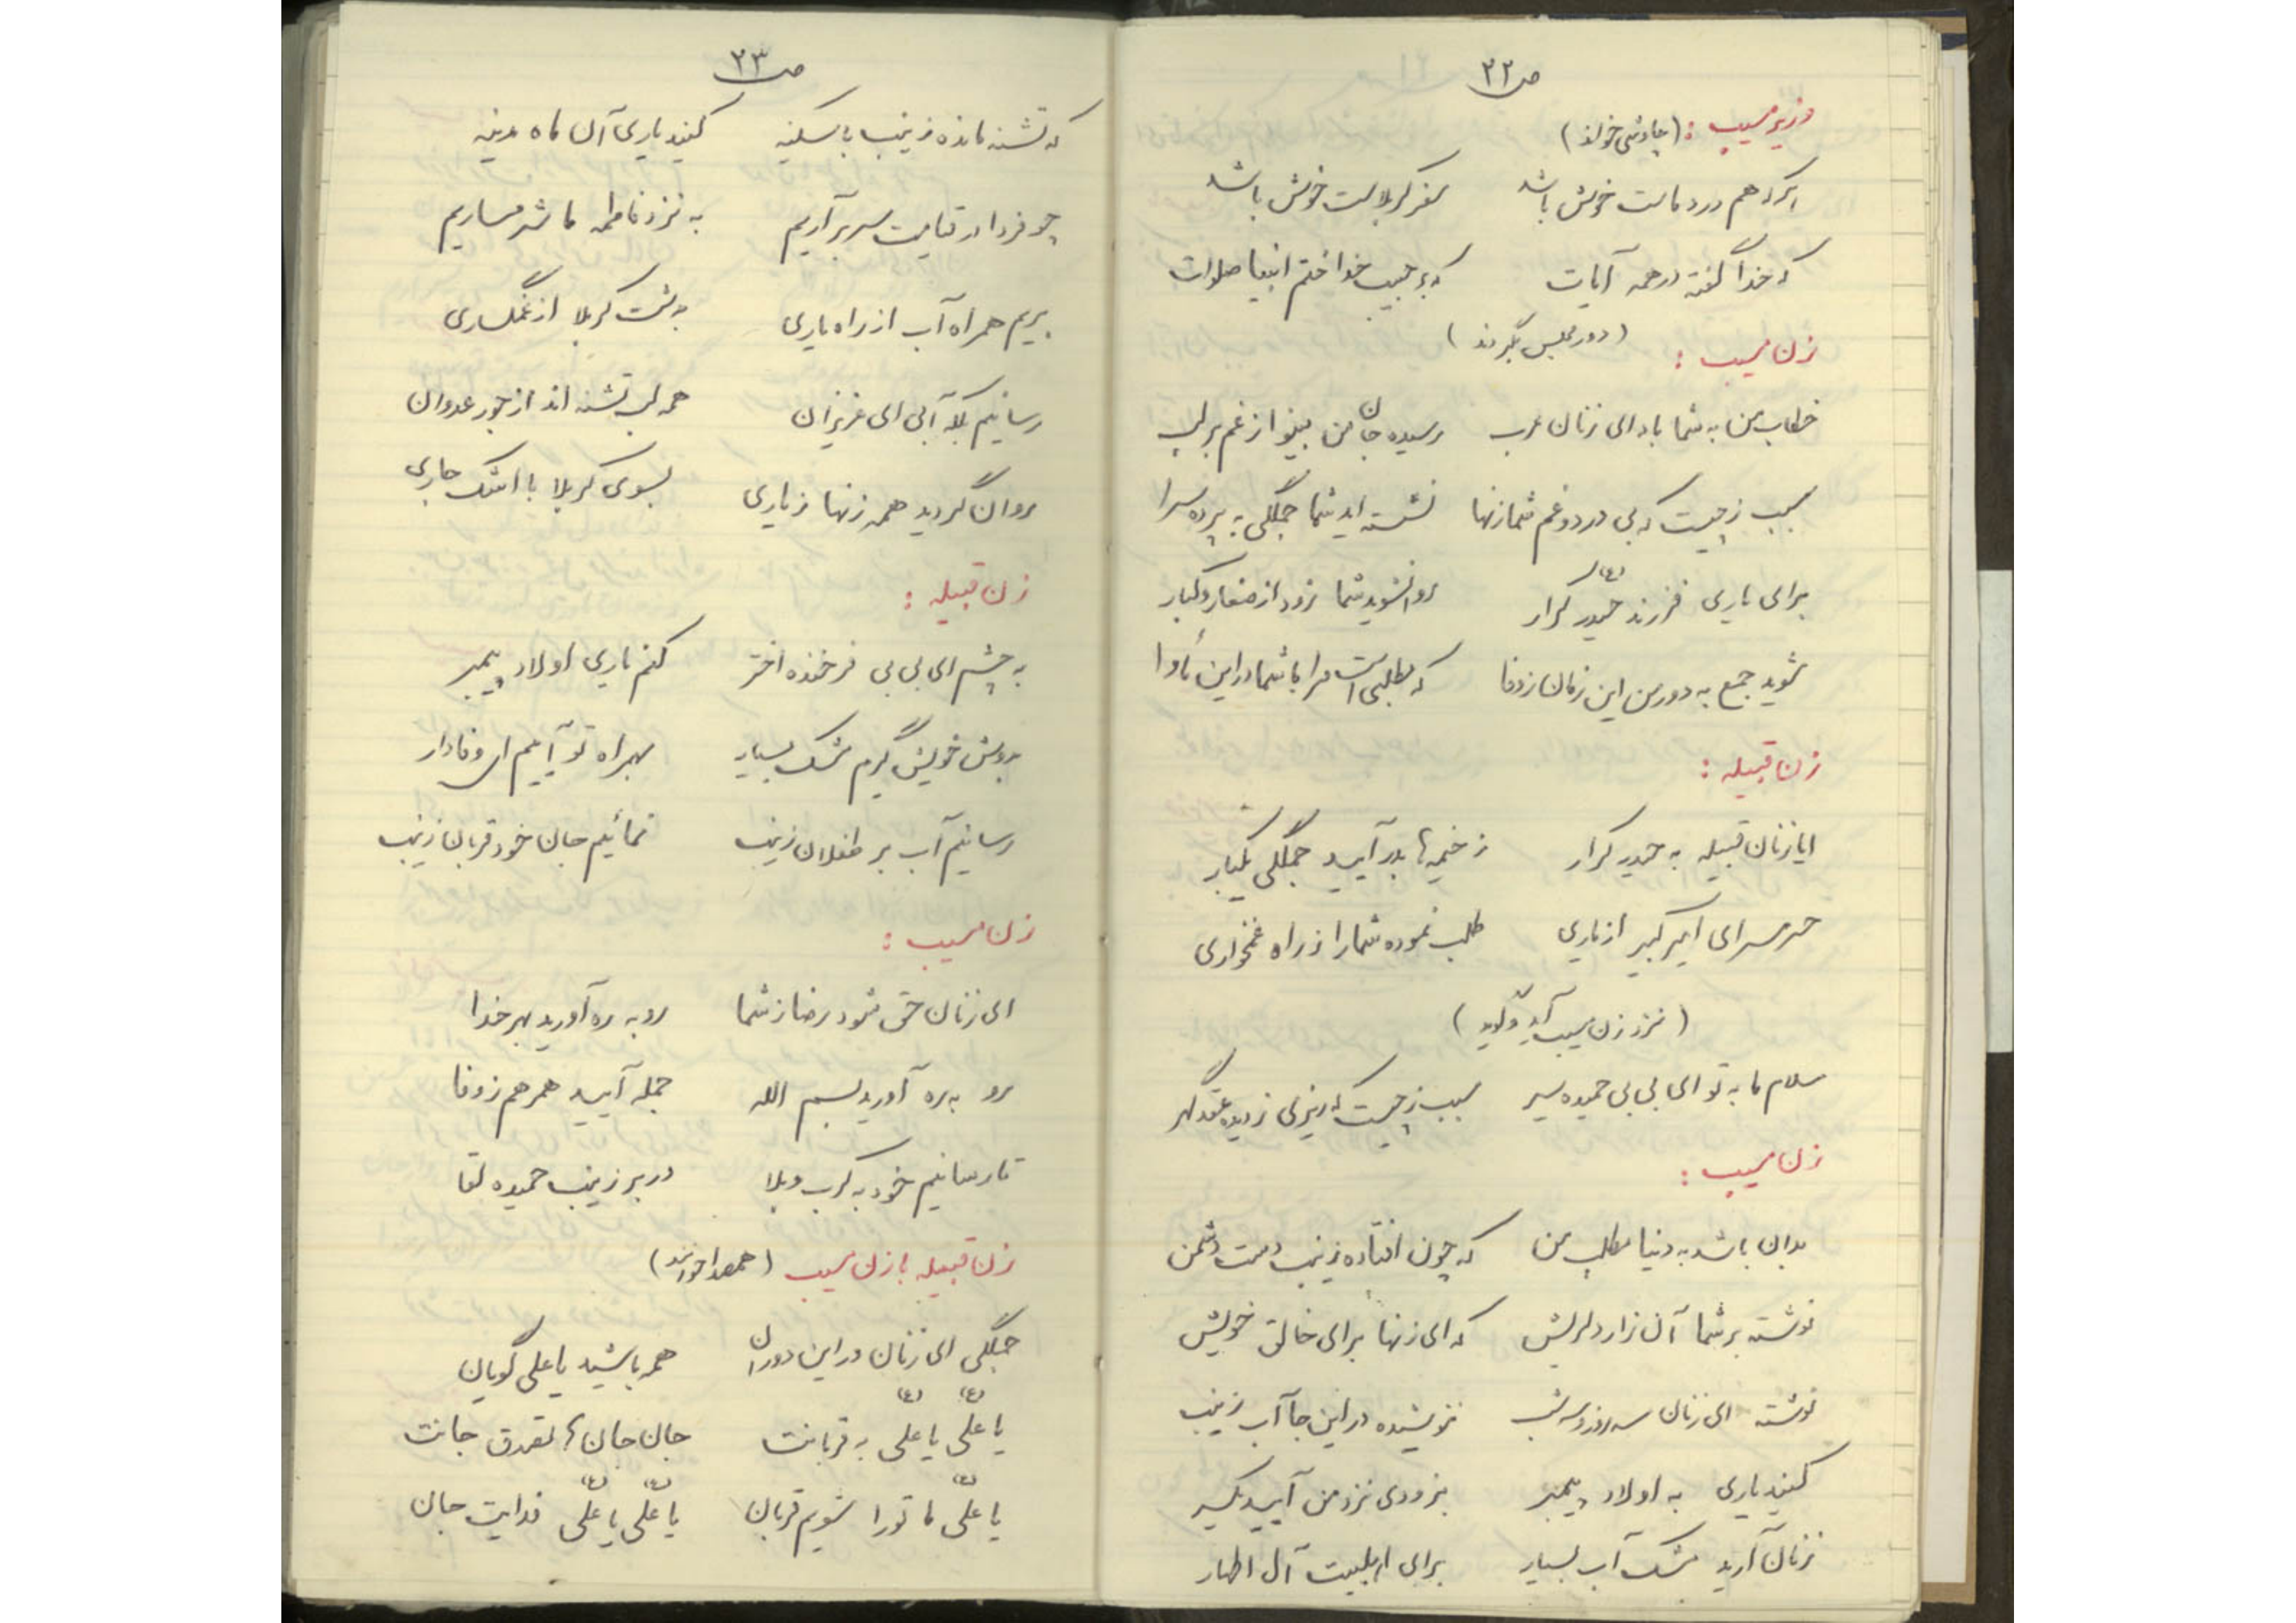 ص ۲۲
وزیر مسیب : (چاوشی خواند)
هر که هم درد ماست خوش باشد سفر کربلاست خوش باشد
که خدا گفته در همه آیات که بر حبیب خدا ختم انبیا صلوات
زن مسیب : (دور مجلس بگردند)
خطاب من به شما باد ای زنان عرب رسیده جان من بینوا ز غم بر لب
سبب ز چیست که بی درد و غم شما زنها نشسته اید شما جملگی به پرده سرا
برای یاری فرزند حیدر کرار (ع) روانشوید شما زود از صغار و کبار
شوید جمع به دور من این زمان ز وفا که مطلبی است مرا با شما در این مأوا
زن قبیله :
ایا زنان قبیله به حیدر کرار ز خیمه ها بدر آیید جملگی یکبار
حرمسرای امیر کبیر از یاری طلب نموده شما را ز راه غمخواری
(نزد زن مسیب آید و گوید)
سلام ما به تو ای بی بی حمیده سیر سبب ز چیست که ریزی ز دیده عقد گهر
زن مسیب :
بدان باشد به دنیا مطلب من که چون افتاده زینب دست دشمن
نوشته بر شما آن زار دلریش که ای زنها برای خالق خویش
نوشته ای زنان سه روز و سه شب ننوشیده در این جا آب زینب
کنید یاری به اولاد پیمبر بزودی نزد من آیید یکسر
زنان آرید مشک آب بسیار برای اهلبیت آل اطهار
ص ۲۳
که تشنه مانده زینب با سکینه کنید یاری آن ماه مدینه
چو فردا در قیامت سر برآریم به نزد فاطمه ما شرمساریم
بریم همراه آب از راه یاری به دشت کربلا از غمگساری
رسانیم بلکه آبی ای عزیزان همه لب تشنه اند از جور عدوان
روان گردید همه زنها ز یاری بسوی کربلا با اشک جاری
زن قبیله :
به چشم ای بی بی فرخنده اختر کنم یاری اولاد پیمبر
بدوش خویش گیرم مشک بسیار بهمراه تو آییم ای وفادار
رسانیم آب بر طفلان زینب نمائیم جان خود قربان زینب
زن مسیب :
ای زنان حق شود رضا ز شما رو به ره آورید بهر خدا
رو به ره آورید بسم الله جمله آیید همرهم ز وفا
تا رسانیم خود به کرب و بلا در بر زینب حمیده لقا
زن قبیله با زن مسیب (همصدا خوانند)
جملگی ای زنان در این دوران همه باشید یا علی گویان
یا علی (ع) یا علی (ع) به قربانت جان جان ما تصدق جانت
یا علی (ع) ما تو را شویم قربان یا علی (ع) یا علی (ع) فدایت جان